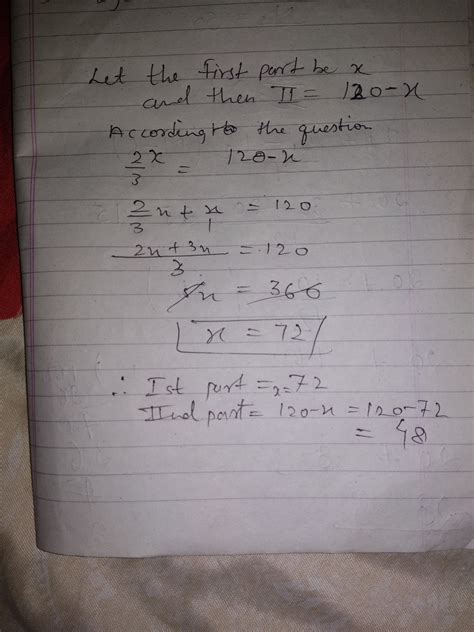 Let the first part be x
and then II = 120-x
According to the question
2/3 x = 120-x
2/3 x + x/1 = 120
2x+3x/3 = 120
5x = 360
x = 72
∴ Ist part = x = 72
IInd part = 120-x = 120-72
= 48